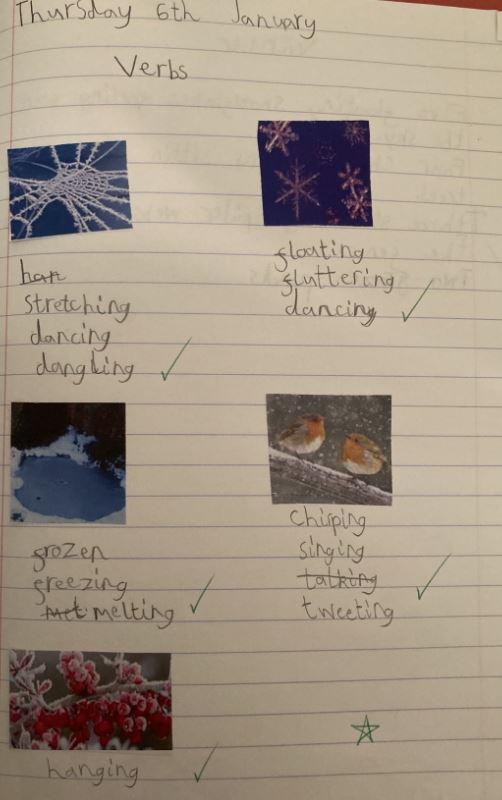 Thursday 6th January
Verbs
han
stretching
dancing
dangling
floating
fluttering
dancing
frozen
freezing
Met melting
Chirping
singing
talking
tweeting
hanging